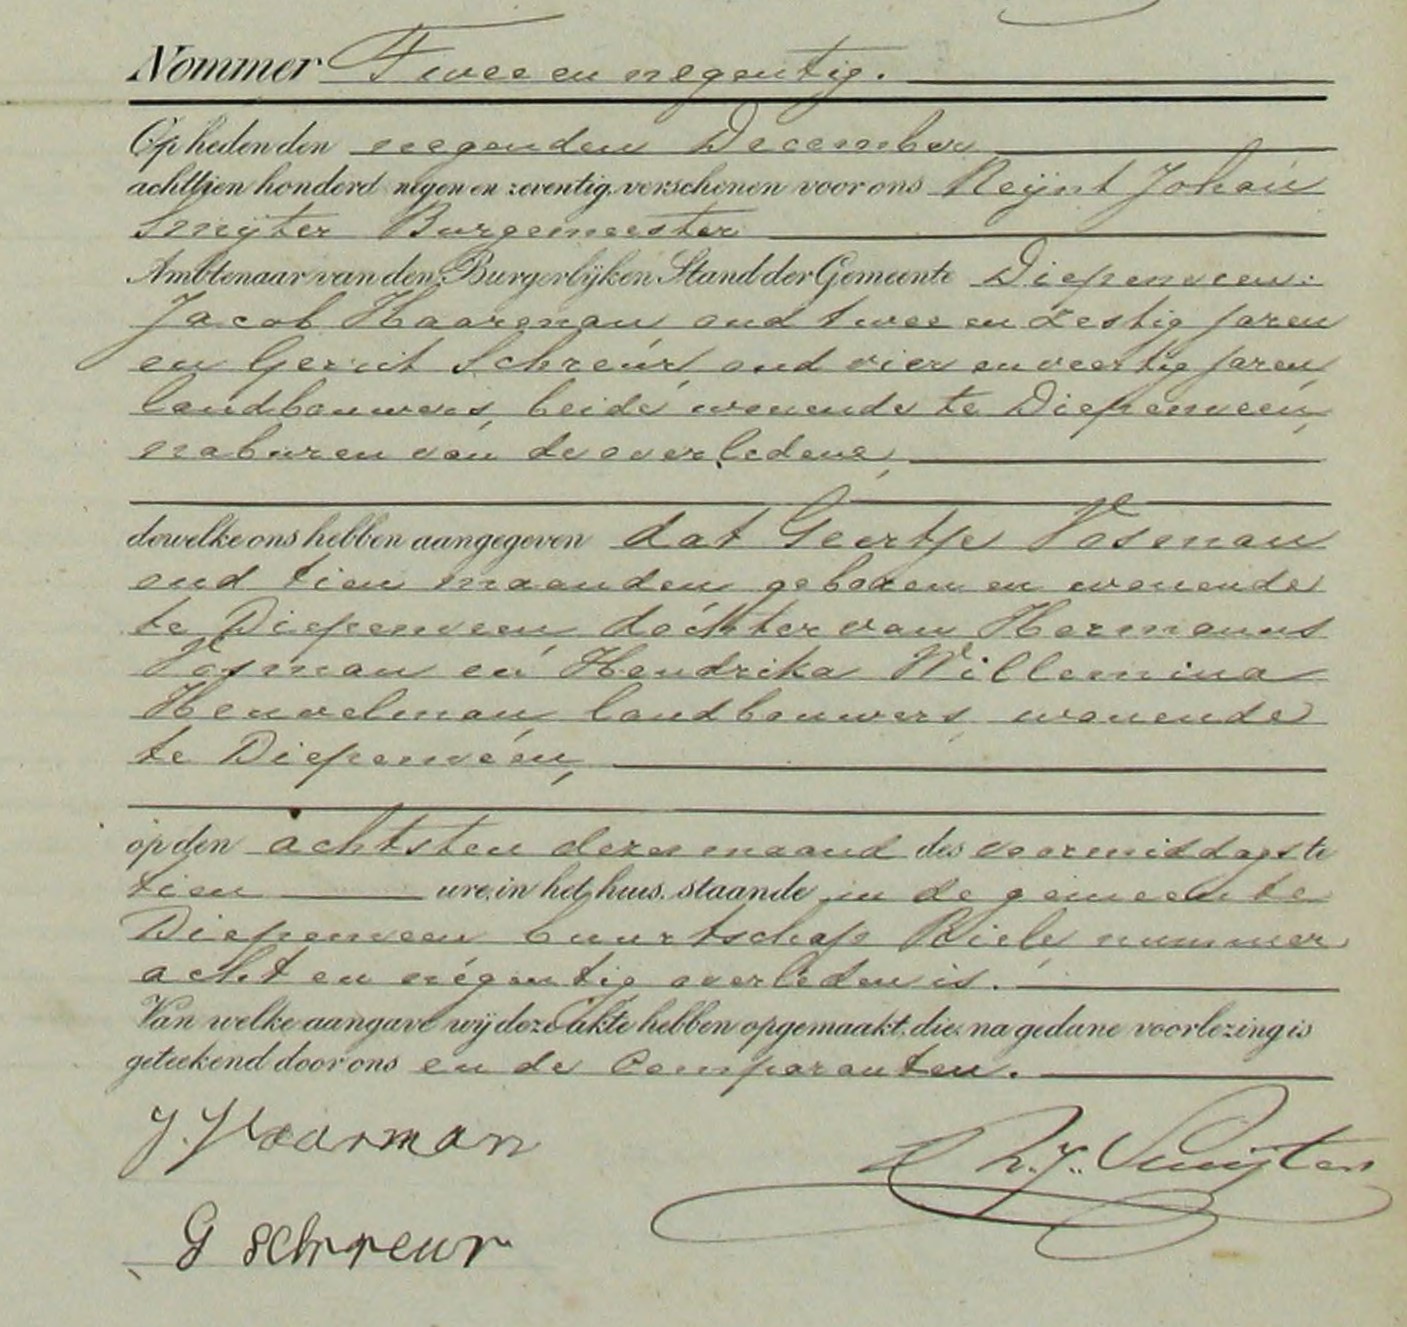 Nommer Twee en negentig.
Op heden den negenden December
achttien honderd negen en zeventig, verschenen voor ons Reijnt Johan
Smijter Burgemeester
Ambtenaar van den Burgerlijken Stand der Gemeente Diepenveen:
Jacob Haarman oud twee en zestig jaren
en Gerrit Schreur, oud vier en veertig jaren
landbouwers, beide wonende te Diepenveen,
naburen van de overledene,
dewelke ons hebben aangegeven dat Geertje Vosman
oud tien maanden geboren en wonende
te Diepenveen dochter van Hermanus
Vosman en Hendrika Willemina
Heuvelman landbouwers, wonende
te Diepenveen,
op den achtsten dezer maand des voormiddags te
tien ure, in het huis, staande in de gemeente
Diepenveen buurtschap Riele nummer
acht en negentig overleden is.
Van welke aangave wij deze akte hebben opgemaakt, die, na gedane voorlezing is
geteekend door ons en de Comparanten.
J. Haarman
R. J. Smijter
G schreur